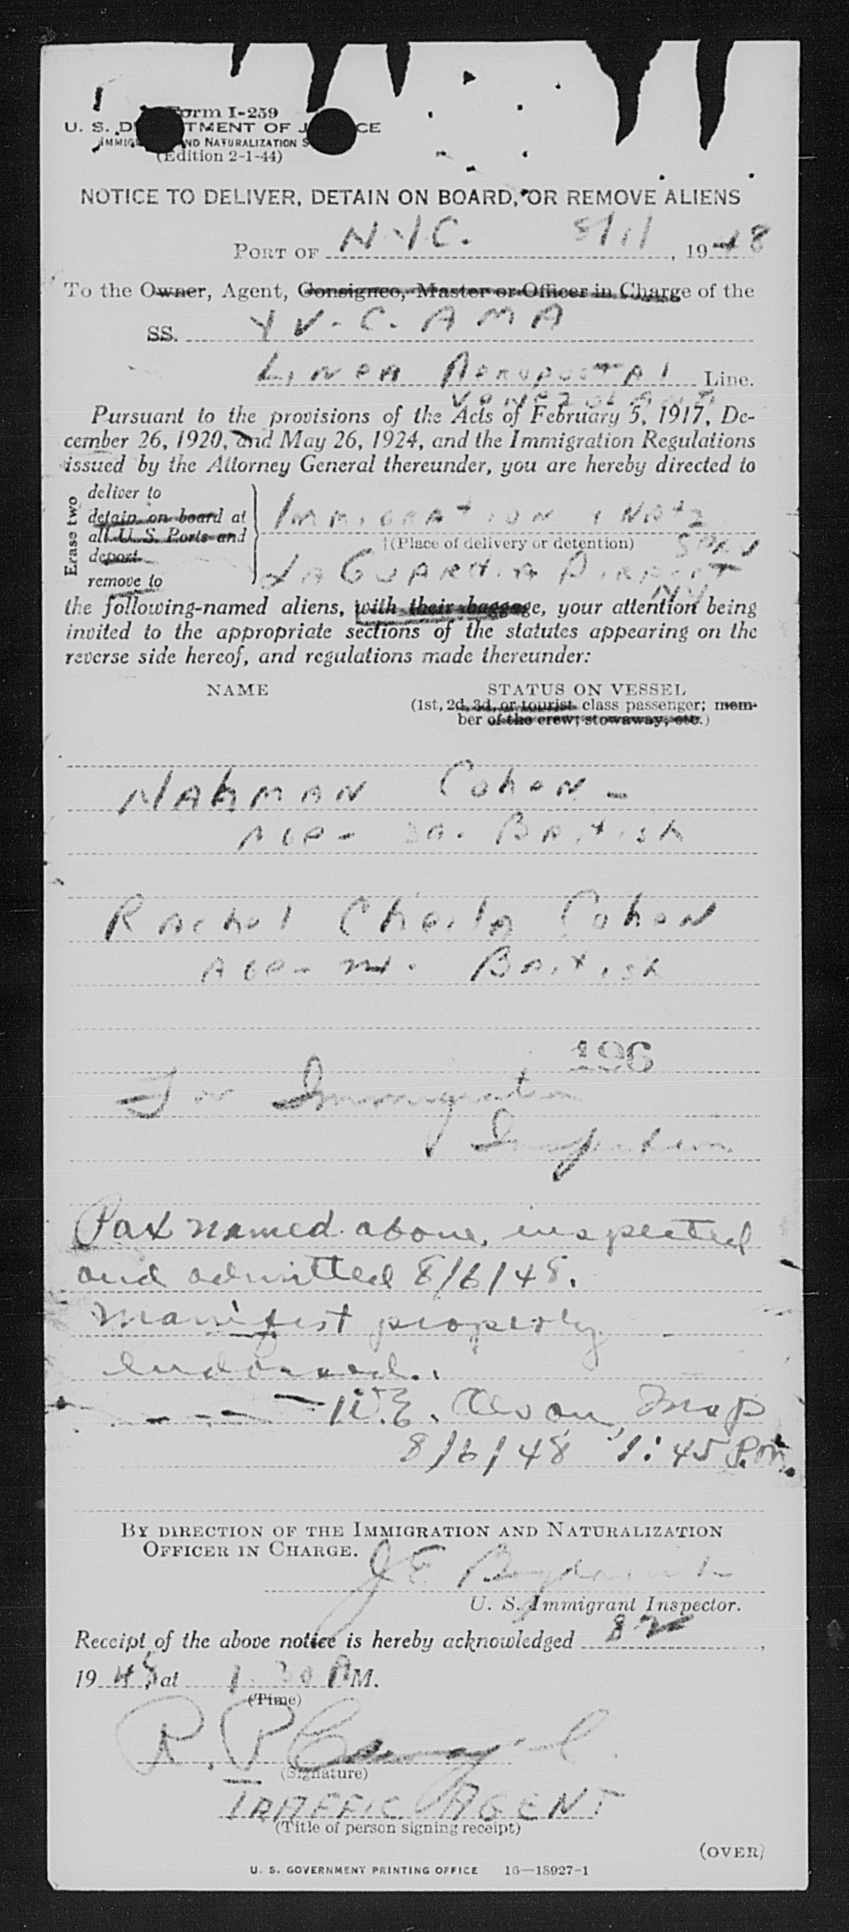 Form I-259
U. S. D TMENT OF J CE
IMMIG ND NATURALIZATION S
(Edition 2-1-44)
NOTICE TO DELIVER, DETAIN ON BOARD, OR REMOVE ALIENS
PORT OF N.Y.C. 8/1/, 1948
To the Owner, Agent, Consignee, Master or Officer in Charge of the
SS. YV-C. AMA
LINEA AEROPOSTAL Line.
VENEZOLANA
Pursuant to the provisions of the Acts of February 5, 1917, De-
cember 26, 1920, and May 26, 1924, and the Immigration Regulations
issued by the Attorney General thereunder, you are hereby directed to
Erase two
deliver to
detain on board at
all U. S. Ports and
deport
remove to
IMMIGRATION
(Place of delivery or detention)
LA GUARDIA AIRPORT
N.Y.
the following-named aliens, with their baggage, your attention being
invited to the appropriate sections of the statutes appearing on the
reverse side hereof, and regulations made thereunder:
NAME STATUS ON VESSEL
(1st, 2d, 3d, or tourist class passenger; mem-
ber of the crew; stowaway, etc.)
NAHMAN COHEN -
AGE- British
Rachel Cheila Cohen
AGE- British
196
For Immigration
Inspection
Pax named above, inspected
and admitted 8/6/48.
Manifest properly
endorsed.
W.E. Insp
8/6/48 1:45 P.M.
BY DIRECTION OF THE IMMIGRATION AND NATURALIZATION
OFFICER IN CHARGE.
J E
U. S. Immigrant Inspector.
Receipt of the above notice is hereby acknowledged 8-2,
1948, at 1:30 PM.
(Time)
R. P.
(Signature)
TRAFFIC AGENT
(Title of person signing receipt)
(OVER)
U. S. GOVERNMENT PRINTING OFFICE 16—18927-1